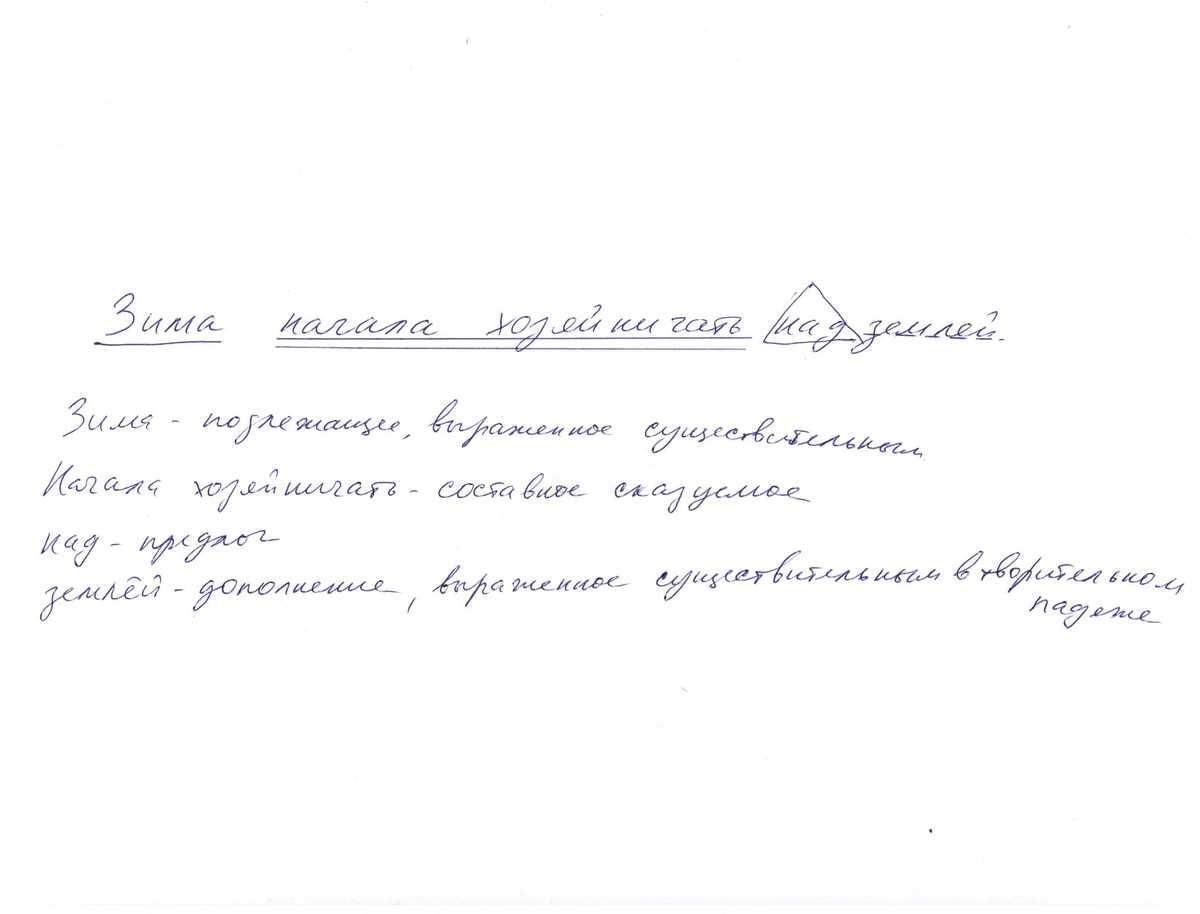 Зима начала хозяйничать над землей.
Зима - подлежащее, выраженное существительным
Начала хозяйничать - составное сказуемое
над - предлог
землёй - дополнение, выраженное существительным в творительном
падеже